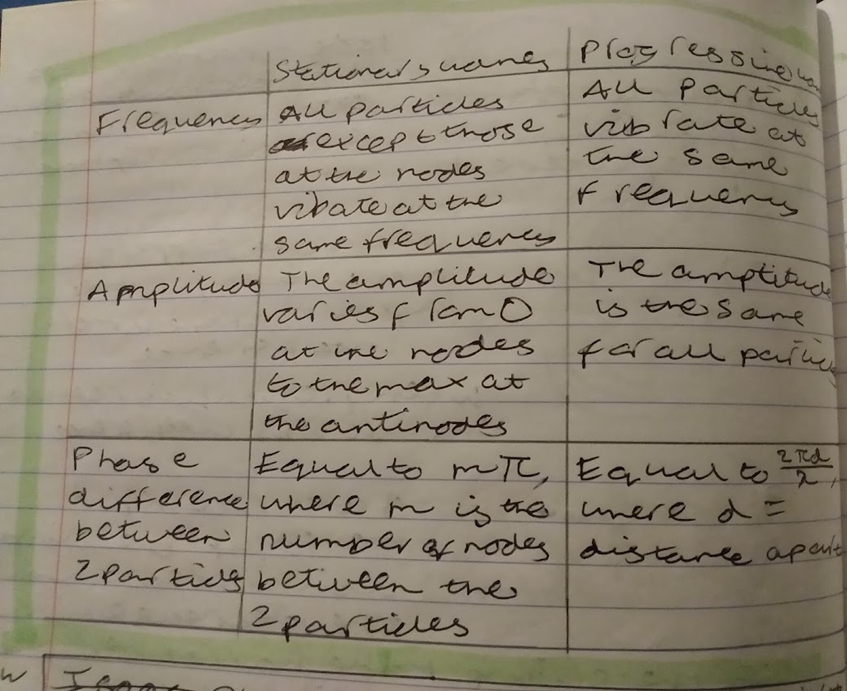 Stationary waves
Progressive
Frequency
All particles
except those
at the nodes
vibate at the
same frequency
All particles
vibrate at
the same
frequency
Amplitude
The amplitude
varies from 0
at the nodes
to the max at
the antinodes
The amptitude
is the same
for all particles
Phase
difference
between
2 particles
Equal to mπ,
where m is the
number of nodes
between the
2 particles
Equal to 2πd/λ,
where d =
distance apart